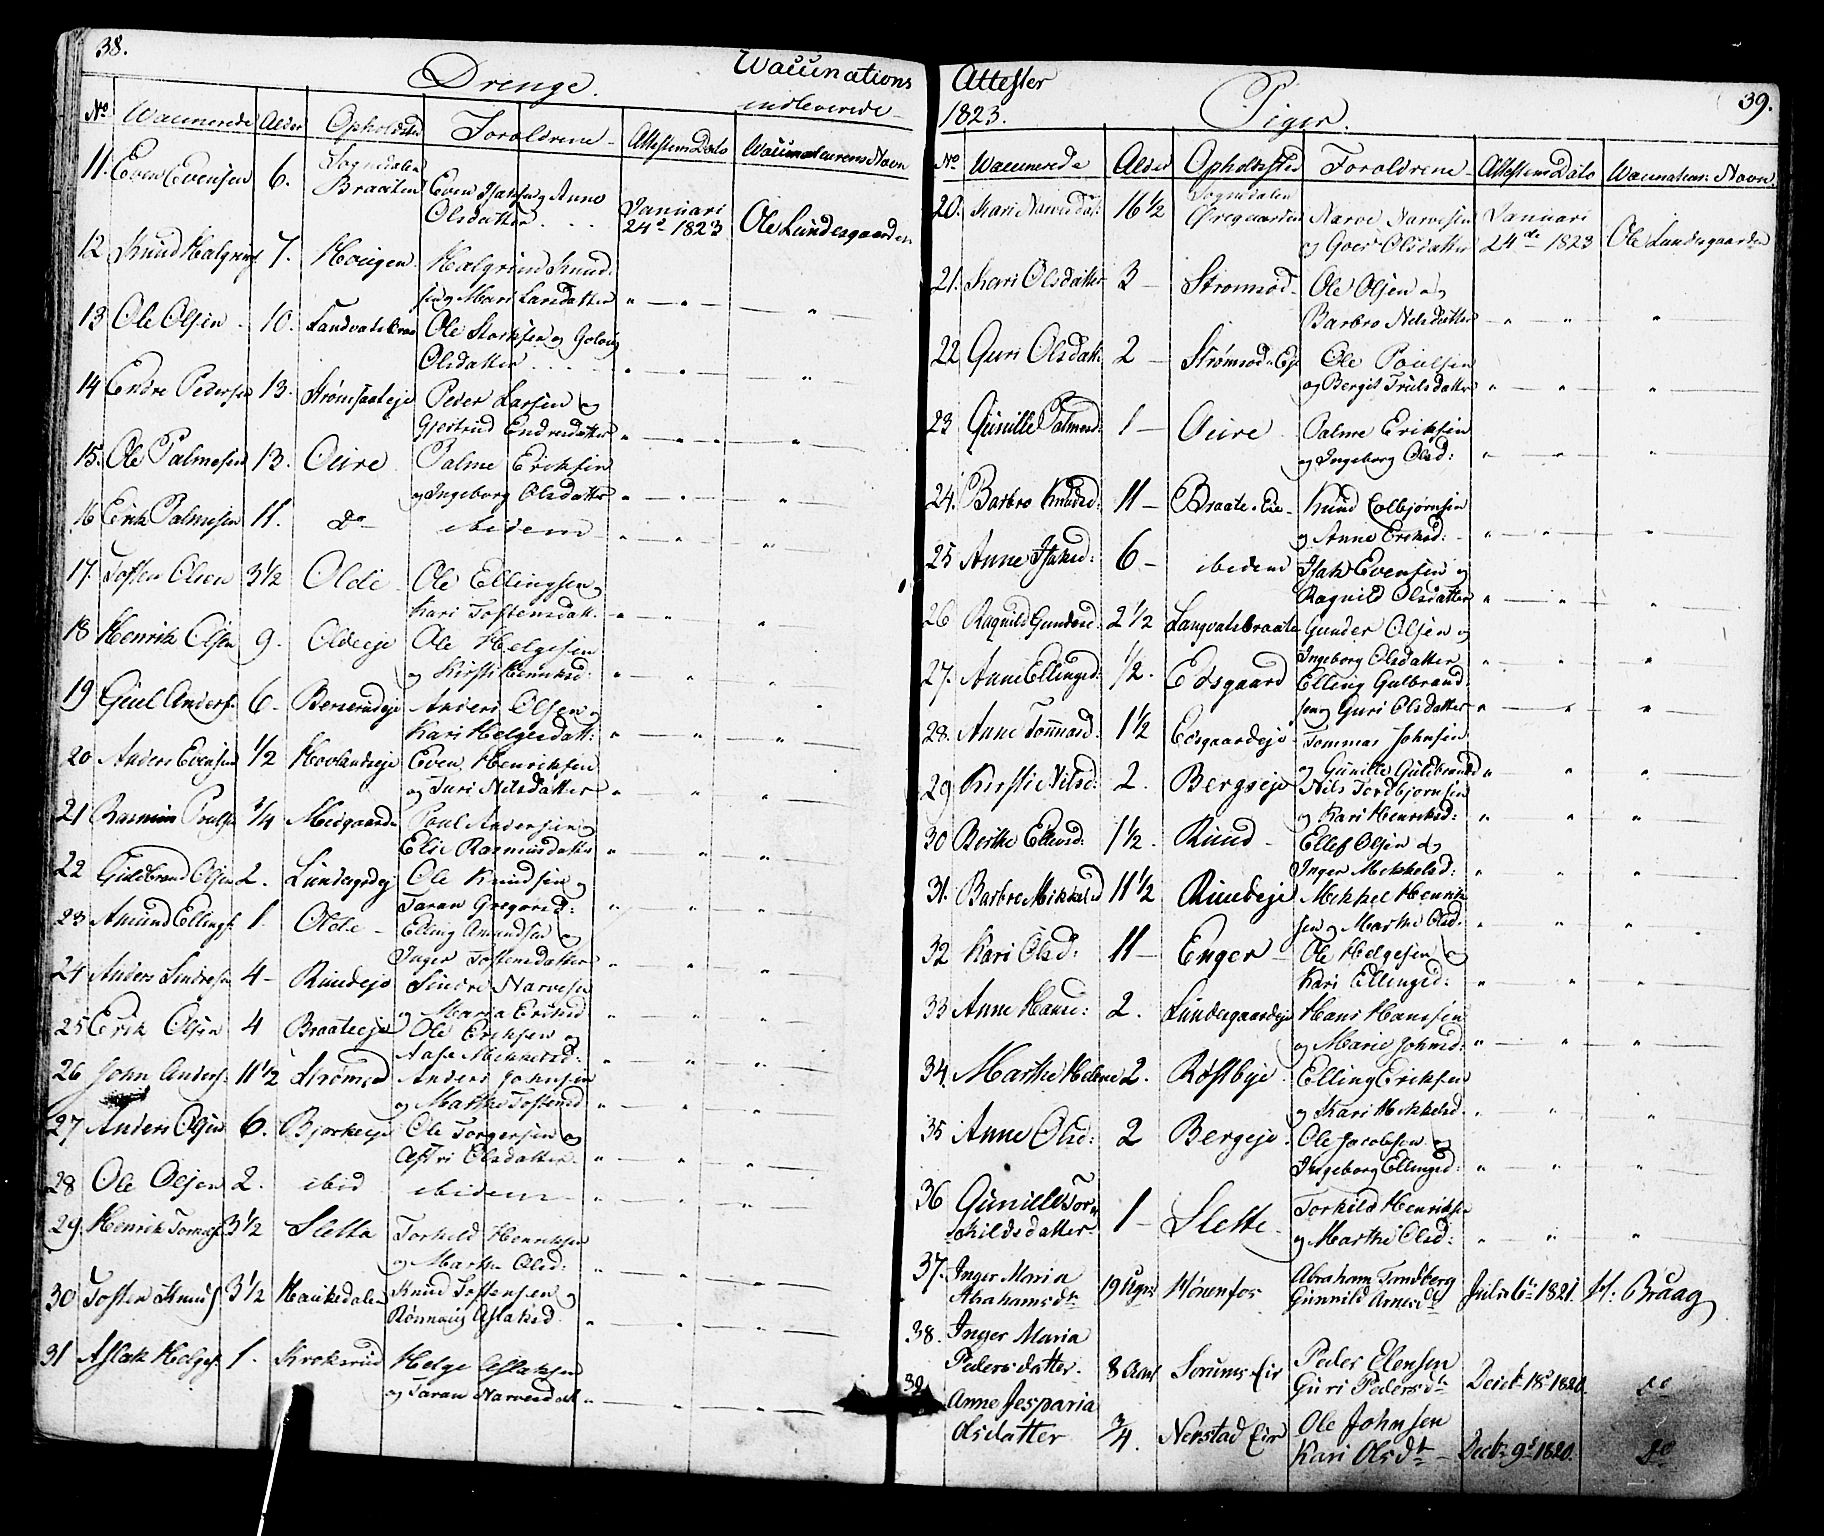 38.
Drenge.
Waccinations
indleverede
No Waccinerede Alder Opholdsted Foroldrene Attestens Dato Waccinateurens Navn
11. Even Evensen 6. Sogndalen Braaten Even Isaksen og Anne
Olsdatter. Januari 24de 1823 Ole Lundesgaarden
12 Knud Halgrims 7. Hougen Halgrim Knud-
sen og Mari Larsdatter " — " — "
13 Ole Olsen 10. Landvatsbraa Ole Storksen og Golaug
Olsdatter " — " — "
14 Endre Pedersen 13. Strømsaateje Peder Larsen og
Gjertrud Endresdatter " — " — "
15. Ole Palmesen 13. Oure Palme Eriksen
og Ingeborg Olsdatter " — " — "
16 Erik Palmesen 11. Do ibidem " — " — "
17. Tosten Olsen 3 1/2 Olde Ole Ellingsen og
Kari Tostensdatt. " — " — "
18 Henrik Olsen 9. Oldeeje Ole Helgesen
og Kirsti Henriksd: " — " — "
19 Giul Anders: 6. Anders Olsen og
Kari Helgesdatt: " — " — "
20 Anders Evensen 1/2 Hovlandseje Even Henriksen
og Turi Nilsdatter " — " — "
21 Rasmus Pouls 1/4 Moegaarde Poul Andersen og
Elie Rasmusdatter " — " — "
22 Guldbrand Olsen 2. Lundesgdej Ole Knudsen og
Taran Gregorsd: " — " — "
23 Amund Ellings: 1. Olde Elling Amundsen og
Inger Tostensdatter " — " — "
24 Anders Sindresen 4 Rundeje Sindre Narvesen
og Maria Eriksd " — " — "
25 Erik Olsen 4 Braateeje Ole Eriksen og
Aase Mikkelsd: " — " — "
26 John Anders: 11 1/2 Strømsod Anders Johnsen
og Marthe Tostensd " — " — "
27 Anders Olsen 6. Bjørkeeje Ole Torgersen og
Astri Olsdatter " — " — "
28 Ole Olsen 2. ibid ibidem " — " — "
29. Henrik 3 1/2 Sletta Torkild Henriksen
og Marthe Olsd: " — " — "
30 Tosten Knuds 3 1/2 Haukedalen Knud Tostensen og
Rønnaug Aslaksd. " — " — "
31 Aslak Helges: 1. Krokerud Helge Aslaksen
og Taran Narvesdatt " — " — "
39.
Attester
1823.
Piger.
No Waccinerede Alder Opholdsted Foroldrene Attestens Dato Waccinateur: Navn.
20. Kari Narvesdat: 16 1/2 Sogndalen Øvregaarden Narve Narvesen
og Goer Olsdatter Januari 24de 1823 Ole Lundesgaarden
21. Kari Olsdatter 3 — Strømsod Ole Olsen og
Barbro Nilsdatter " — " — "
22 Guri Olsdatt: 2 — Strømsod Eje Ole Poulsen
og Bergit Trulsdatter " — " — "
23 Gunille Palmesd: 1 — Oure Palme Eriksen
og Ingeborg Olsd: " — " — "
24. Barbro Knudsd: 11 — Braate Eie Knud Colbjørnsen
og Anne Eriksd: " — " — "
25 Anne Isaksd: 6 — ibidem Isak Evensen og
Ragnild Olsdatter " — " — "
26 Ragnild Gundersd: 2 1/2 Langvatsbraate Gunder Olsen og
Ingeborg Olsdatter " — " — "
27. Anne Ellingsd: 1/2. Edsgaard Elling Gulbrand-
sen og Guri Olsdatter " — " — "
28. Anne Tommasd: 1 1/2 Edsgaardeje Tommas Johnsen
og Gunille Guldbrandsd " — " — "
29 Kirstie Nilsd: 2. Bergseje Nils Tordbjørnsen
og Kari Henriksd: " — " — "
30 Berthe Ellevsd: 1 1/2. Rund Ellef Olsen og
Inger Mikkelsd: " — " — "
31. Barbro Mikkelsd 11 1/2 Rundeje Mikkel Henrik-
sen og Marthe Olsd: " — " — "
32 Kari Olsd: 11 — Enger Ole Helgesen og
Kari Ellingsd: " — " — "
33 Anne Hansd: 2. Lundesgaardeje Hans Hanssen
og Marie Johnsd: " — " — "
34. Marthe Helene 2. Røstbye Elling Eriksen
og Kari Mikkelsd. " — " — "
35 Anne Olsd: 2 Bergeje Ole Jacobsen og
Ingeborg Ellingsd: " — " — "
36 Gunille Tor-
kildsdatter 1 — Slette Torkild Henriksen
og Marthe Olsd: " — " — "
37. Inger Maria
Abrahamsdtr 19 Uger Hønenfos Abraham Tandberg
Gunnild Arnesdtr Juli 6te 1821. H. Braag
38. Inger Maria
Pedersdatter. 8 Aar Sørums Eie Peder Elensen
Guri Pedersdtr Decbr 18de 1820. do
39. Anne Jesparia
Olsdatter 3/4. Nerstad Eie Ole Johnsen
Kari Olsdtr Decbr 9de 1820. do